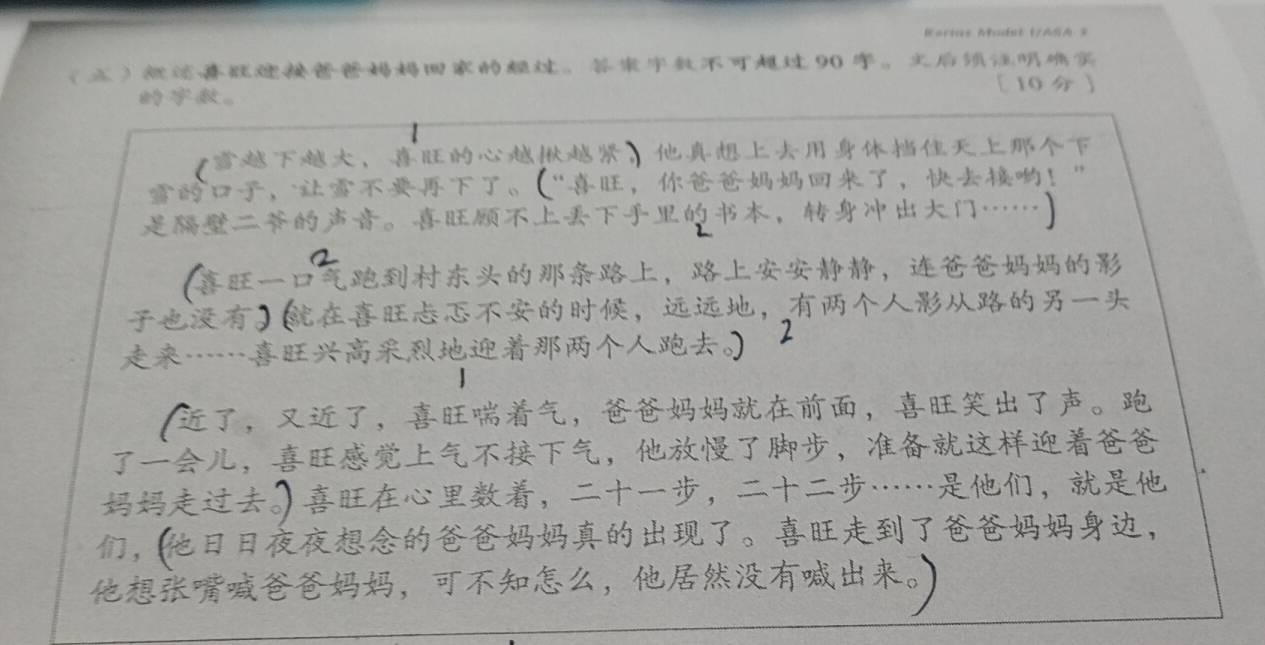 Kertas Model UASA 2
（五）概述喜旺迎接爸爸妈妈回家的经过。答案字数不可超过 90 字。文后须注明确实
的字数。
［10 分］
1
（雪越下越大，喜旺的心越揪越紧）他真想上去用身体挡住天上那个下
雪的口子，让雪不要再下了。（“喜旺，你爸爸妈妈回来了，快去接哟！”
是隔壁二爷的声音。喜旺顾不上丢下手里的书本，转身冲出大门……）
2
2
（喜旺一口气跑到村东头的那条路上，路上安安静静，连爸爸妈妈的影
子也没有）（就在喜旺忐忑不安的时候，远远地，有两个人影从路的另一头
走来……喜旺兴高采烈地迎着那两个人跑去。）
2
1
（近了，又近了，喜旺喘着气，爸爸妈妈就在前面，喜旺笑出了声。跑
了一会儿，喜旺感觉上气不接下气，他放慢了脚步，准备就这样迎着爸爸
妈妈走过去。）喜旺在心里数着，二十一步，二十二步……是他们，就是他
们，（他日日夜夜想念的爸爸妈妈真的出现了。喜旺走到了爸爸妈妈身边，
他想张嘴喊爸爸妈妈，可不知怎么，他居然没有喊出来。）